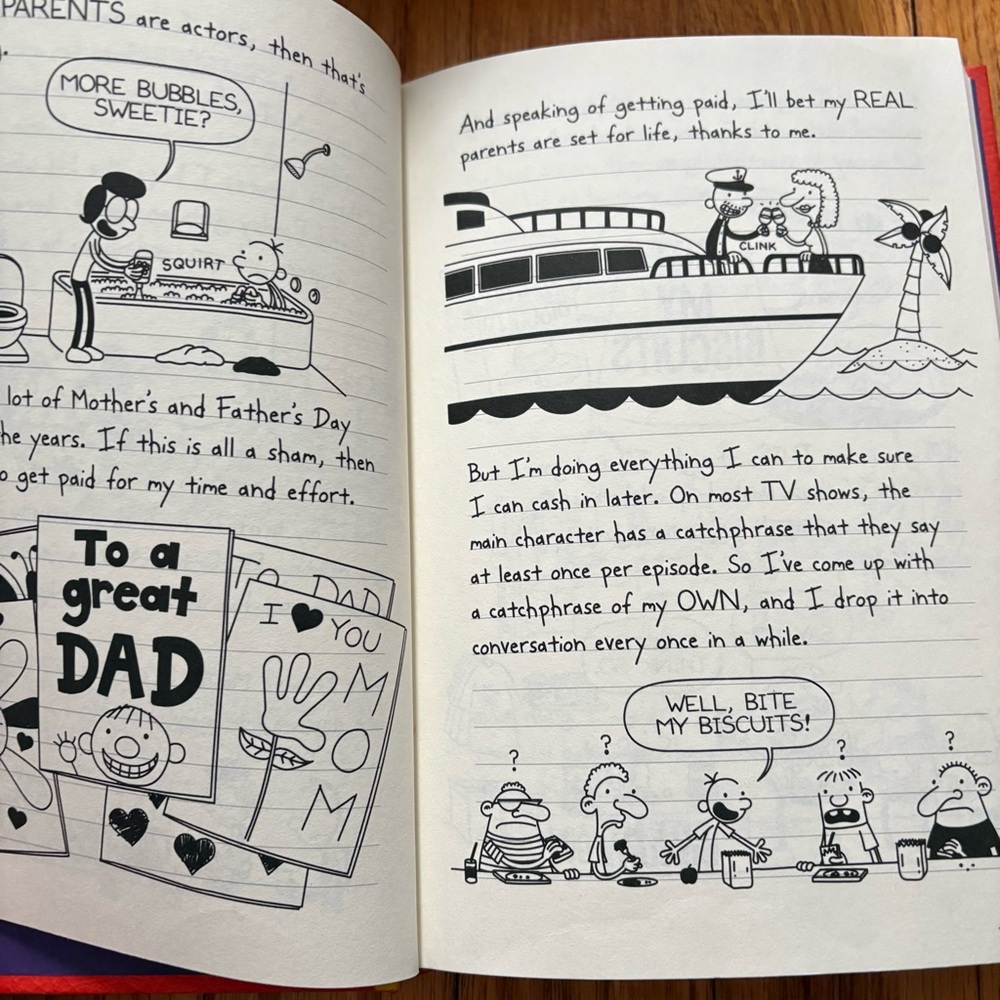 PARENTS are actors, then that's
MORE BUBBLES,
SWEETIE?
SQUIRT
lot of Mother's and Father's Day
he years. If this is all a sham, then
o get paid for my time and effort.
To a
great
DAD
TO DAD
I ♥ YOU
M
O
M
And speaking of getting paid, I'll bet my REAL
parents are set for life, thanks to me.
CLINK
But I'm doing everything I can to make sure
I can cash in later. On most TV shows, the
main character has a catchphrase that they say
at least once per episode. So I've come up with
a catchphrase of my OWN, and I drop it into
conversation every once in a while.
WELL, BITE
MY BISCUITS!
? ? ? ?